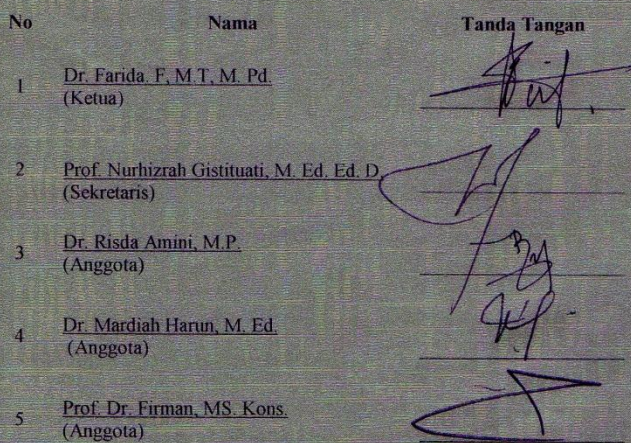 No Nama Tanda Tangan
1 Dr. Farida. F, M.T, M. Pd.
(Ketua)
2 Prof. Nurhizrah Gistituati, M. Ed. Ed. D.
(Sekretaris)
3 Dr. Risda Amini, M.P.
(Anggota)
4 Dr. Mardiah Harun, M. Ed.
(Anggota)
5 Prof. Dr. Firman, MS. Kons.
(Anggota)